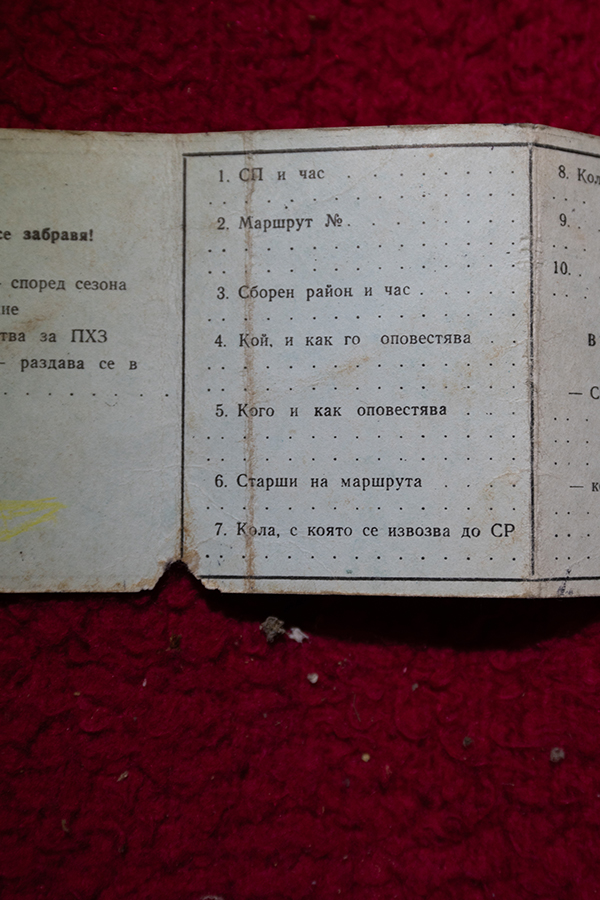 се забравя!
според сезона
за ПХЗ
– раздава се в
1. СП и час
2. Маршрут №
3. Сборен район и час
4. Кой, и как го оповестява
5. Кого и как оповестява
6. Старши на маршрута
7. Кола, с която се извозва до СР
8.
9.
10.
В
– С